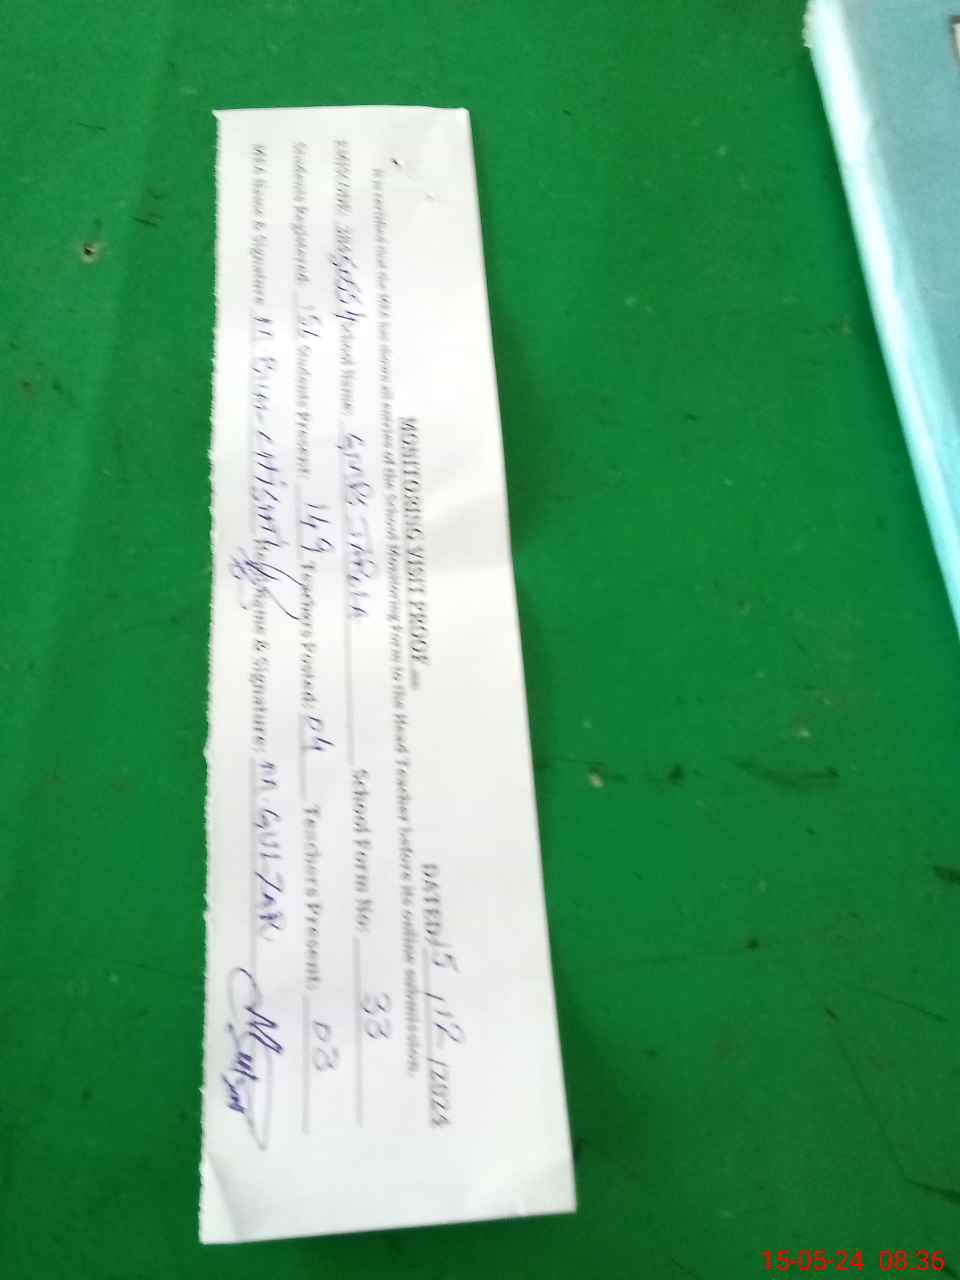 MONITORING VISIT PROOF
DATED: 15/12/2024
It is certified that the MEA has shown all entries of the School Monitoring Form to the Head Teacher before its online submission.
School Name: GMPS School Form No: 33
Students Registered: 156 Students Present: 149 Teachers Posted: 04 Teachers Present: 03
MEA Name & Signature: M. Name & Signature: M. GULZAR
15-05-24 08:36